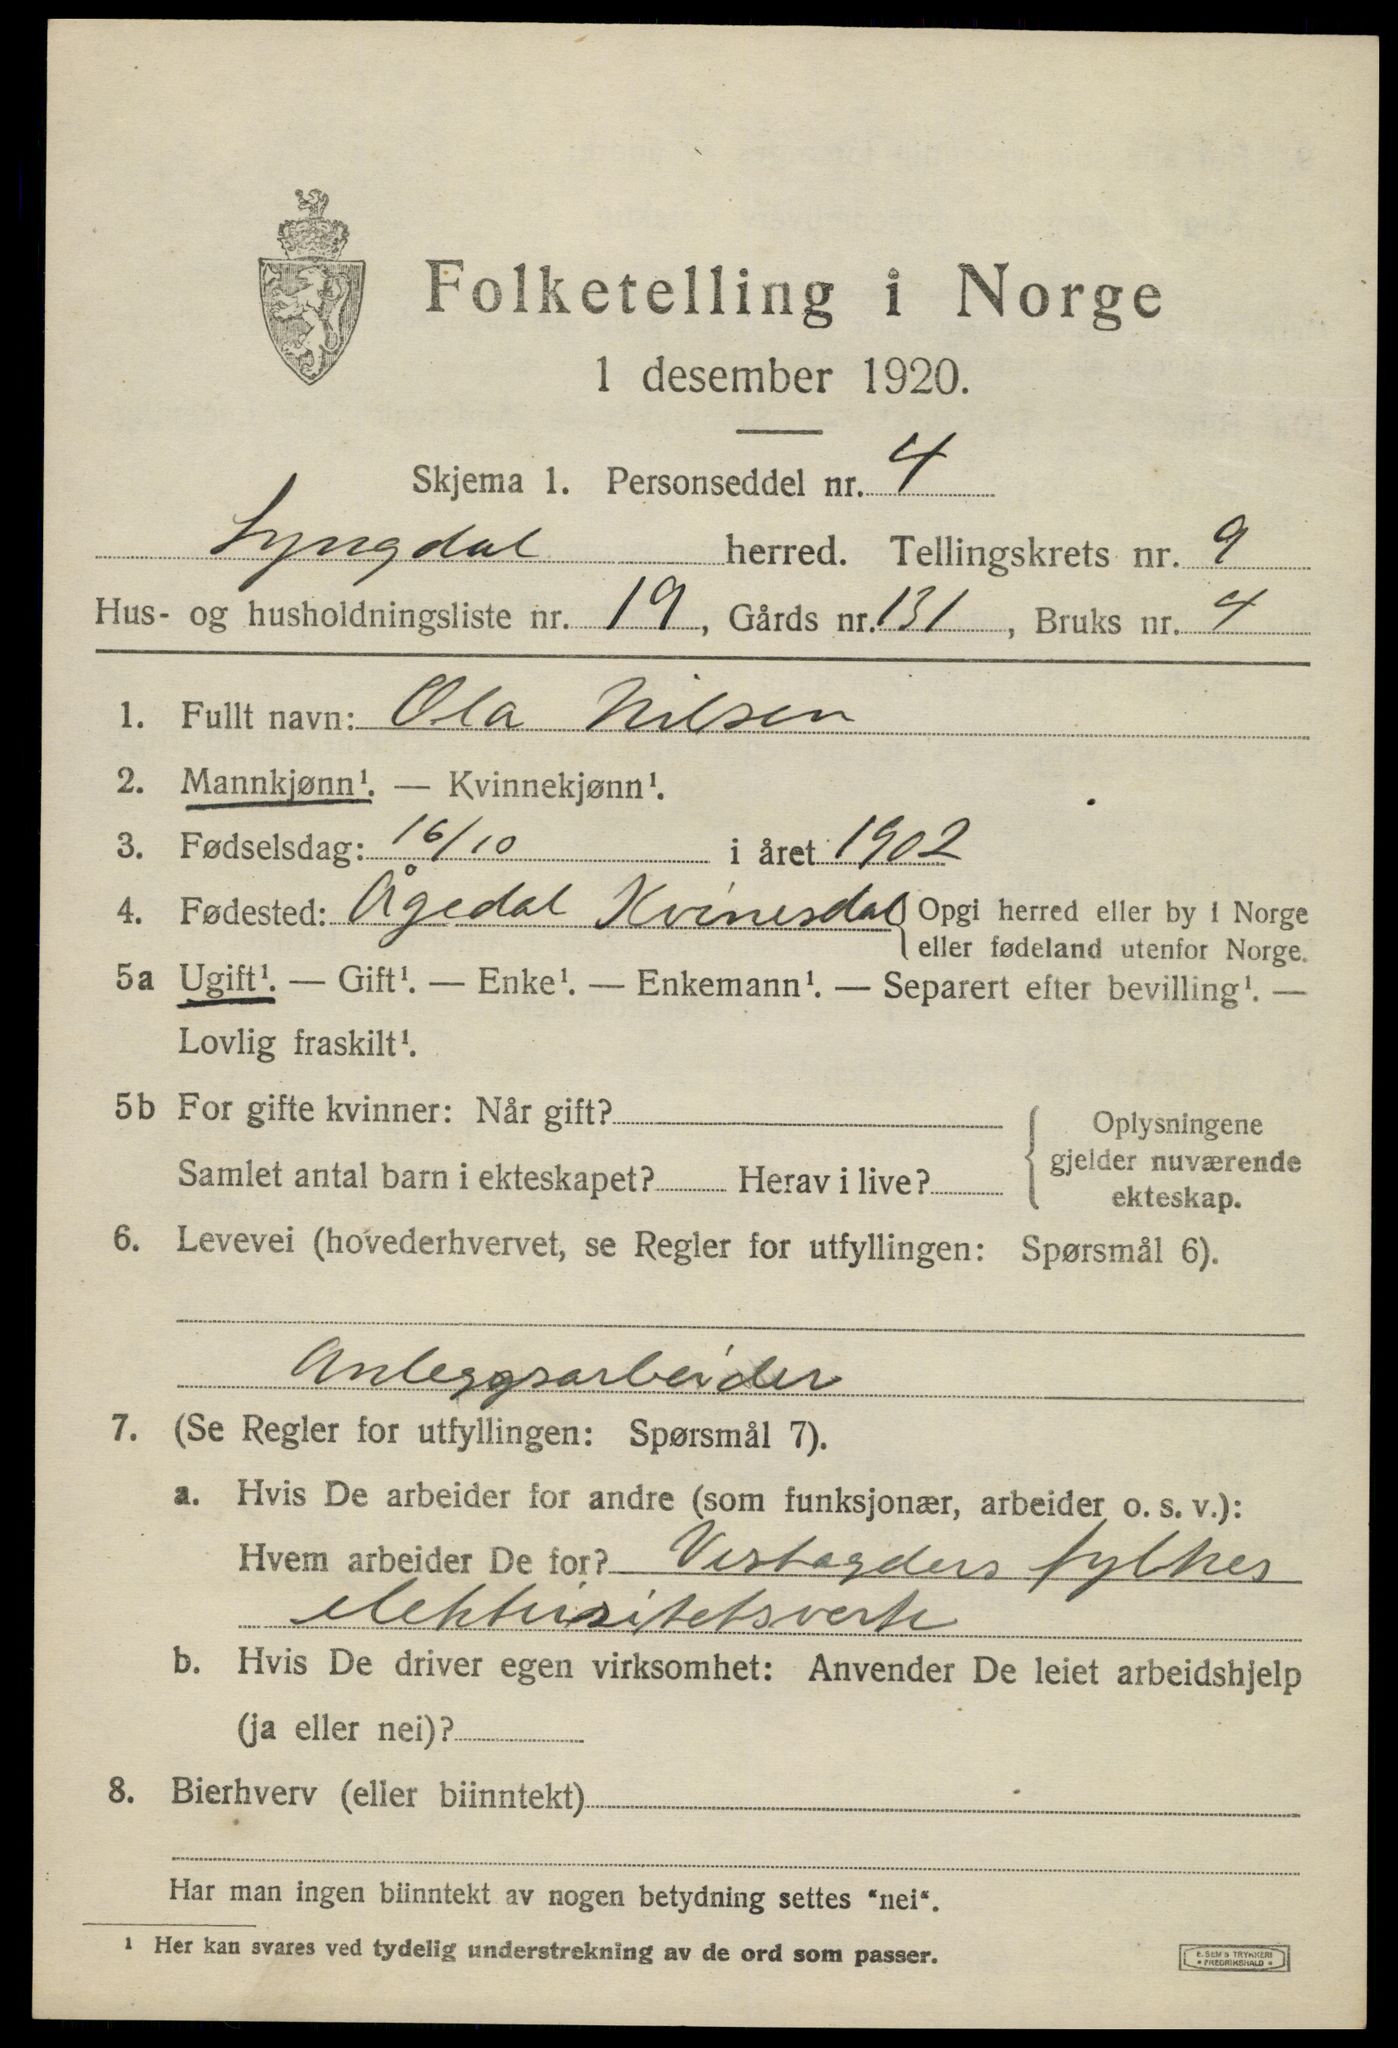 Folketelling i Norge
1 desember 1920.
Skjema 1. Personseddel nr. 4
Lyngdal herred. Tellingskrets nr. 9
Hus- og husholdningsliste nr. 19, Gårds nr. 131, Bruks nr. 4
1. Fullt navn: Ola Nilsen
2. Mannkjønn¹. — Kvinnekjønn¹.
3. Fødselsdag: 16/10 i året 1902
4. Fødested: Ågedal Kvinesdal { Opgi herred eller by i Norge
eller fødeland utenfor Norge.
5a Ugift¹. — Gift¹. — Enke¹. — Enkemann¹. — Separert efter bevilling¹. —
Lovlig fraskilt¹.
5b For gifte kvinner: Når gift?
Samlet antal barn i ekteskapet? Herav i live?
{ Oplysningene
gjelder nuværende
ekteskap.
6. Levevei (hovederhvervet, se Regler for utfyllingen: Spørsmål 6).
Anleggsarbeider
7. (Se Regler for utfyllingen: Spørsmål 7).
a. Hvis De arbeider for andre (som funksjonær, arbeider o. s. v.):
Hvem arbeider De for? Vestagders fylkes
elektrisitetsverk
b. Hvis De driver egen virksomhet: Anvender De leiet arbeidshjelp
(ja eller nei)?
8. Bierhverv (eller biinntekt)
Har man ingen biinntekt av nogen betydning settes "nei".
¹ Her kan svares ved tydelig understrekning av de ord som passer.
E. SEM'S TRYKKERI
* FREDRIKSHALD *